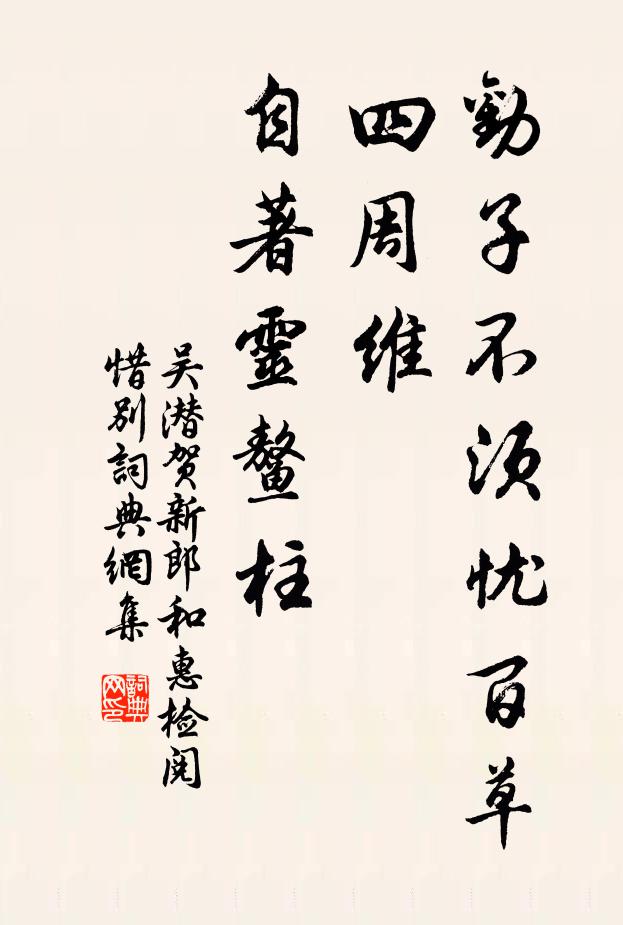 勸子不須忧百草
四周維
自著靈鼇柱
吴潜贺新郎和惠检阅
惜别詞典網集
詞典网印